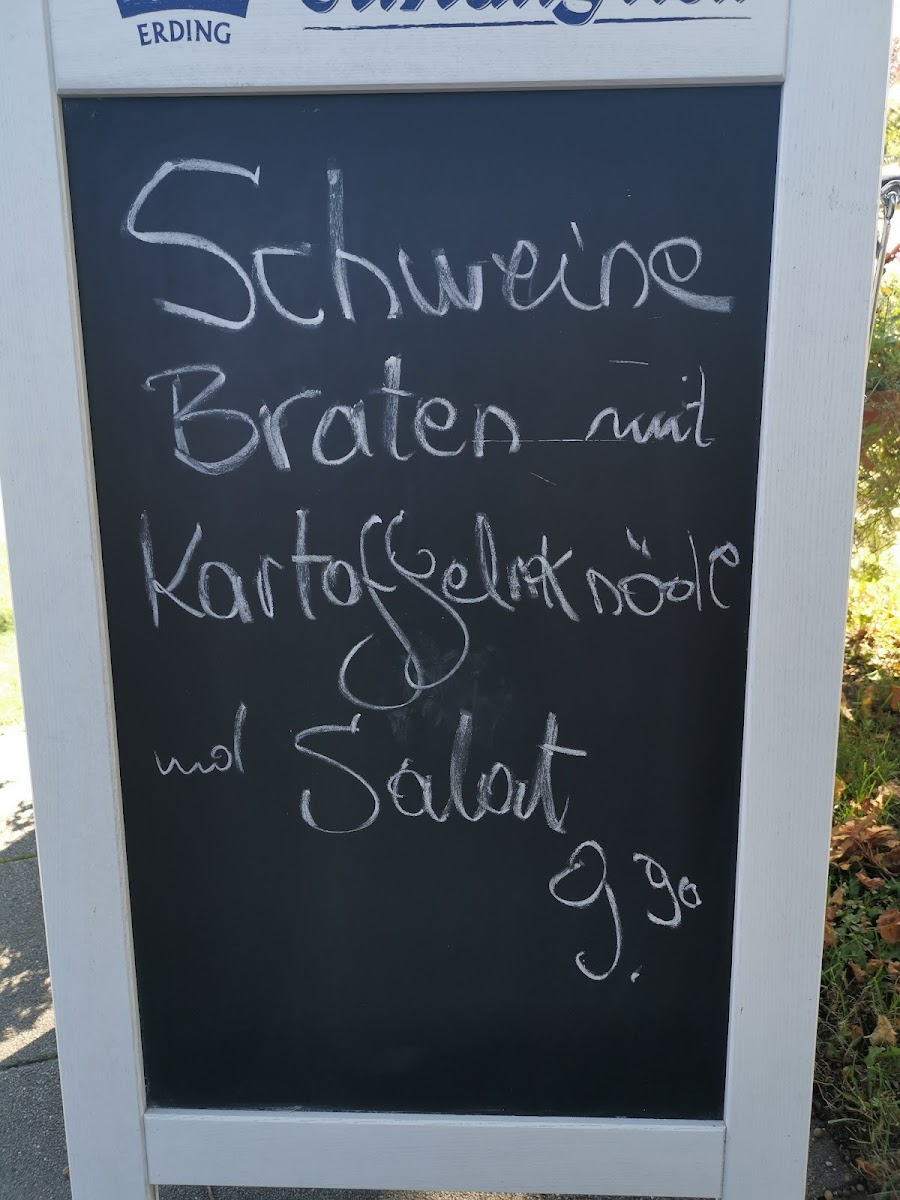 ERDING
Schweine
Braten mit
Kartoffelnknödle
und Salat
9.90